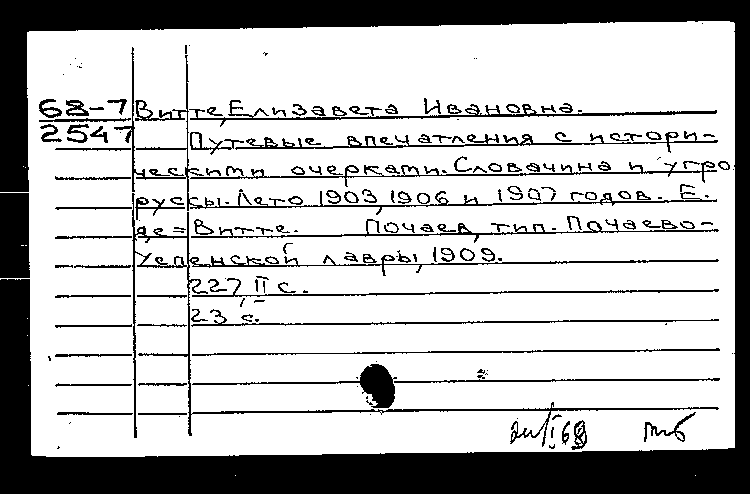 68-7 Витте, Елизавета Ивановна.
2547 Путевые впечатления с истори-
ческими очерками. Словачина и угро
руссы. Лето 1903, 1906 и 1907 годов. Е.
де=Витте. Почаев, тип. Почаево-
Успенской лавры, 1909.
227, II с.
23 с.